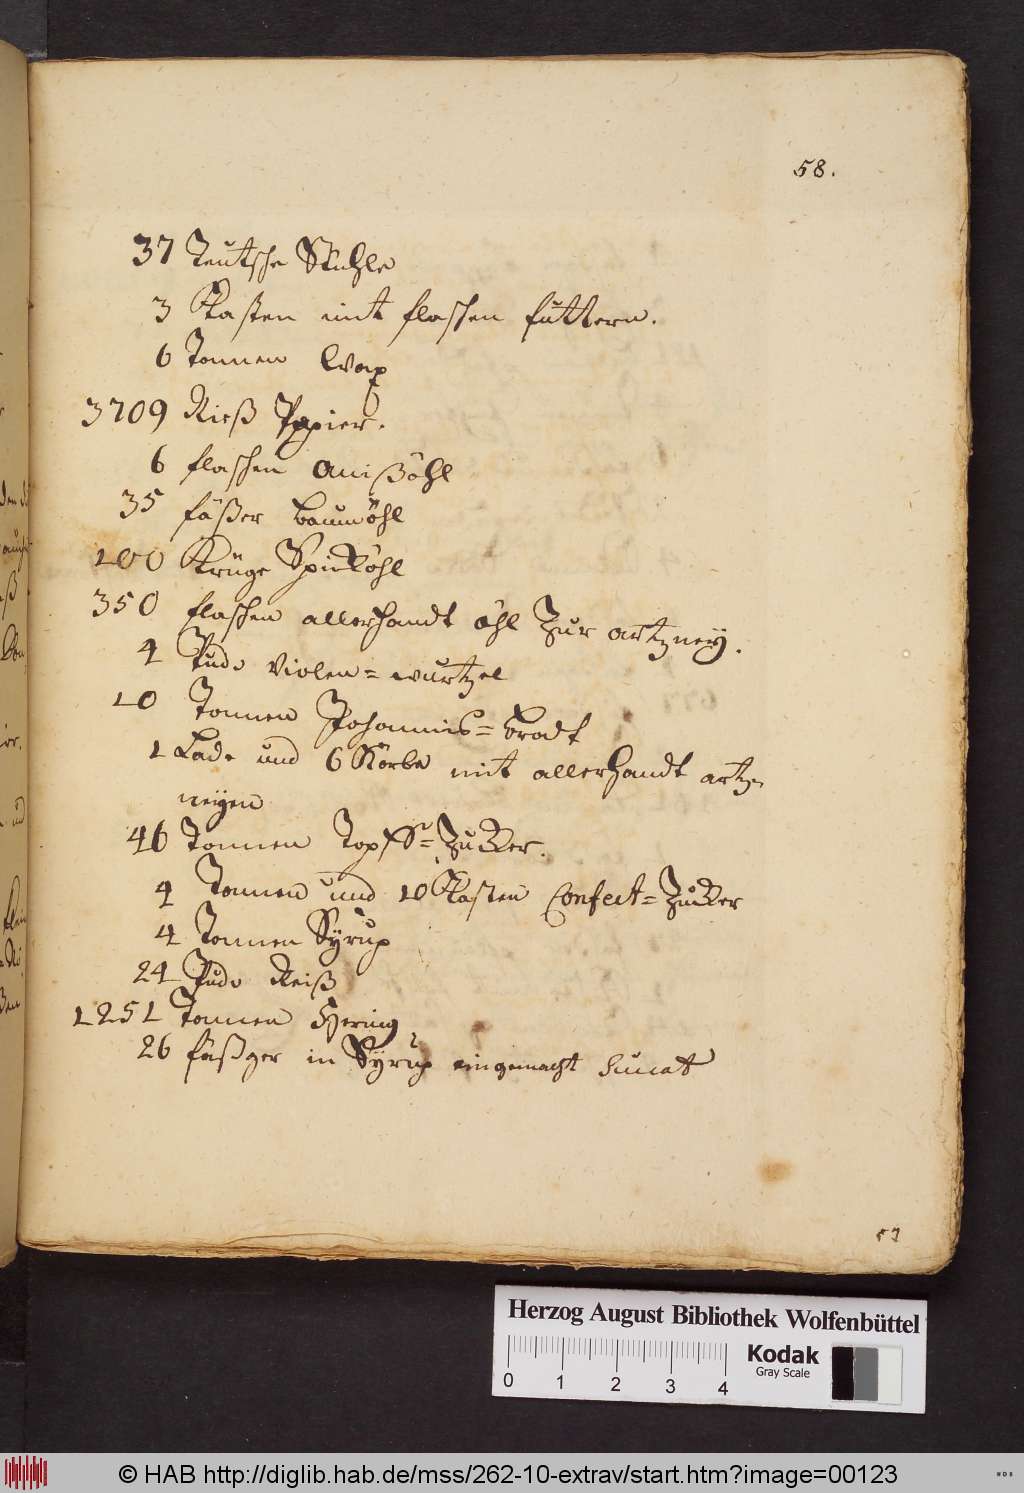 58.
37 Teutsche Stühle
3 Kasten mit flaschen füttern.
6 Tonnen
3709 Rieß Papier.
6 flaschen Anißöhl
35 fäßer baumöhl
100 Krüge Spicköhl
350 flaschen allerhandt öhl Zur artzney.
4 Pude Violen=wurtzel
10 Tonnen Johannis=brodt
1 Lade und 6 Körbe mit allerhandt artz-
neyen
46 Tonnen Topff=Zucker.
4 Tonnen und 10 Kasten Confect=Zucker
4 Tonnen Syrup
24 Pude Reiß
1251 Tonnen Hering
26 fäßger in Syrup eingemacht
53
Herzog August Bibliothek Wolfenbüttel
0 1 2 3 4
Kodak
Gray Scale
© HAB http://diglib.hab.de/mss/262-10-extrav/start.htm?image=00123